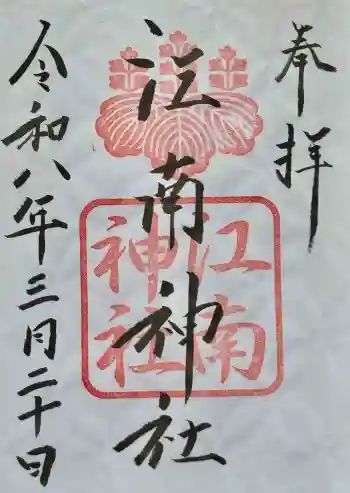 奉拝
江南神社
江南
神社
令和八年三月二十日